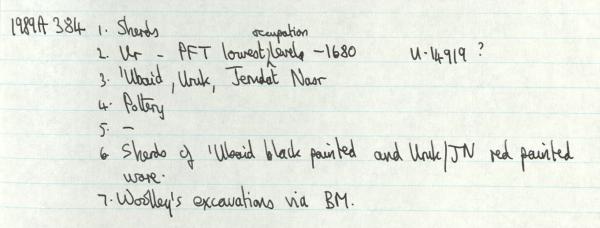 1989A 384 1. Sherds
2. Ur - PFT lowest occupation levels -1680 U.14919 ?
3. 'Ubaid, Uruk, Jemdat Nasr
4. Pottery
5. -
6. Sherds of 'Ubaid black painted and Uruk/JN red painted
ware.
7. Woolley's excavations via BM.